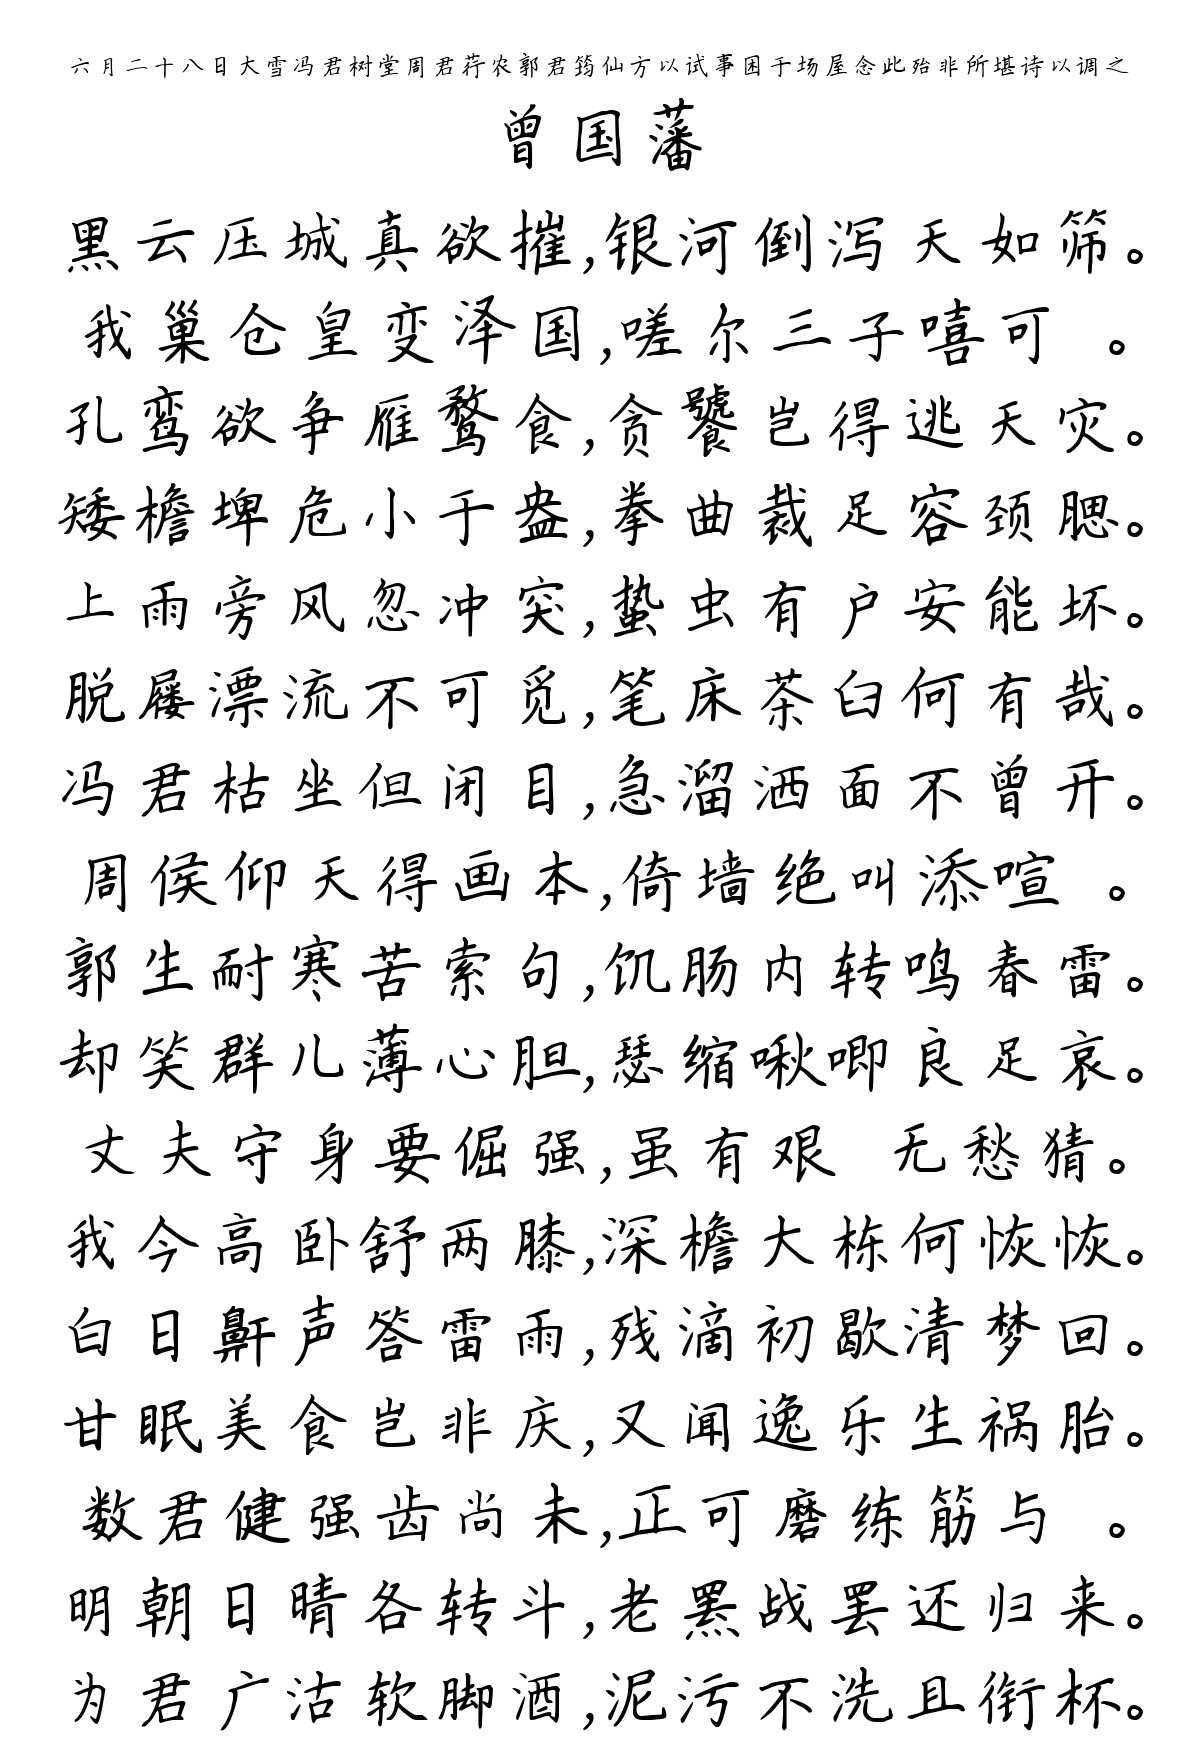 六月二十八日大雪冯君树堂周君荇农郭君筠仙方以试事困于场屋念此殆非所堪诗以调之
曾国藩
黑云压城真欲摧,银河倒泻天如筛。
我巢仓皇变泽国,嗟尔三子嘻可 。
孔鸾欲争雁鹜食,贪饕岂得逃天灾。
矮檐埤危小于盎,拳曲裁足容颈腮。
上雨旁风忽冲突,蛰虫有户安能坏。
脱屦漂流不可觅,笔床茶臼何有哉。
冯君枯坐但闭目,急溜洒面不曾开。
周侯仰天得画本,倚墙绝叫添喧 。
郭生耐寒苦索句,饥肠内转鸣春雷。
却笑群儿薄心胆,瑟缩啾唧良足哀。
丈夫守身要倔强,虽有艰 无愁猜。
我今高卧舒两膝,深檐大栋何恢恢。
白日鼾声答雷雨,残滴初歇清梦回。
甘眠美食岂非庆,又闻逸乐生祸胎。
数君健强齿尚未,正可磨练筋与 。
明朝日晴各转斗,老罴战罢还归来。
为君广沽软脚酒,泥污不洗且衔杯。